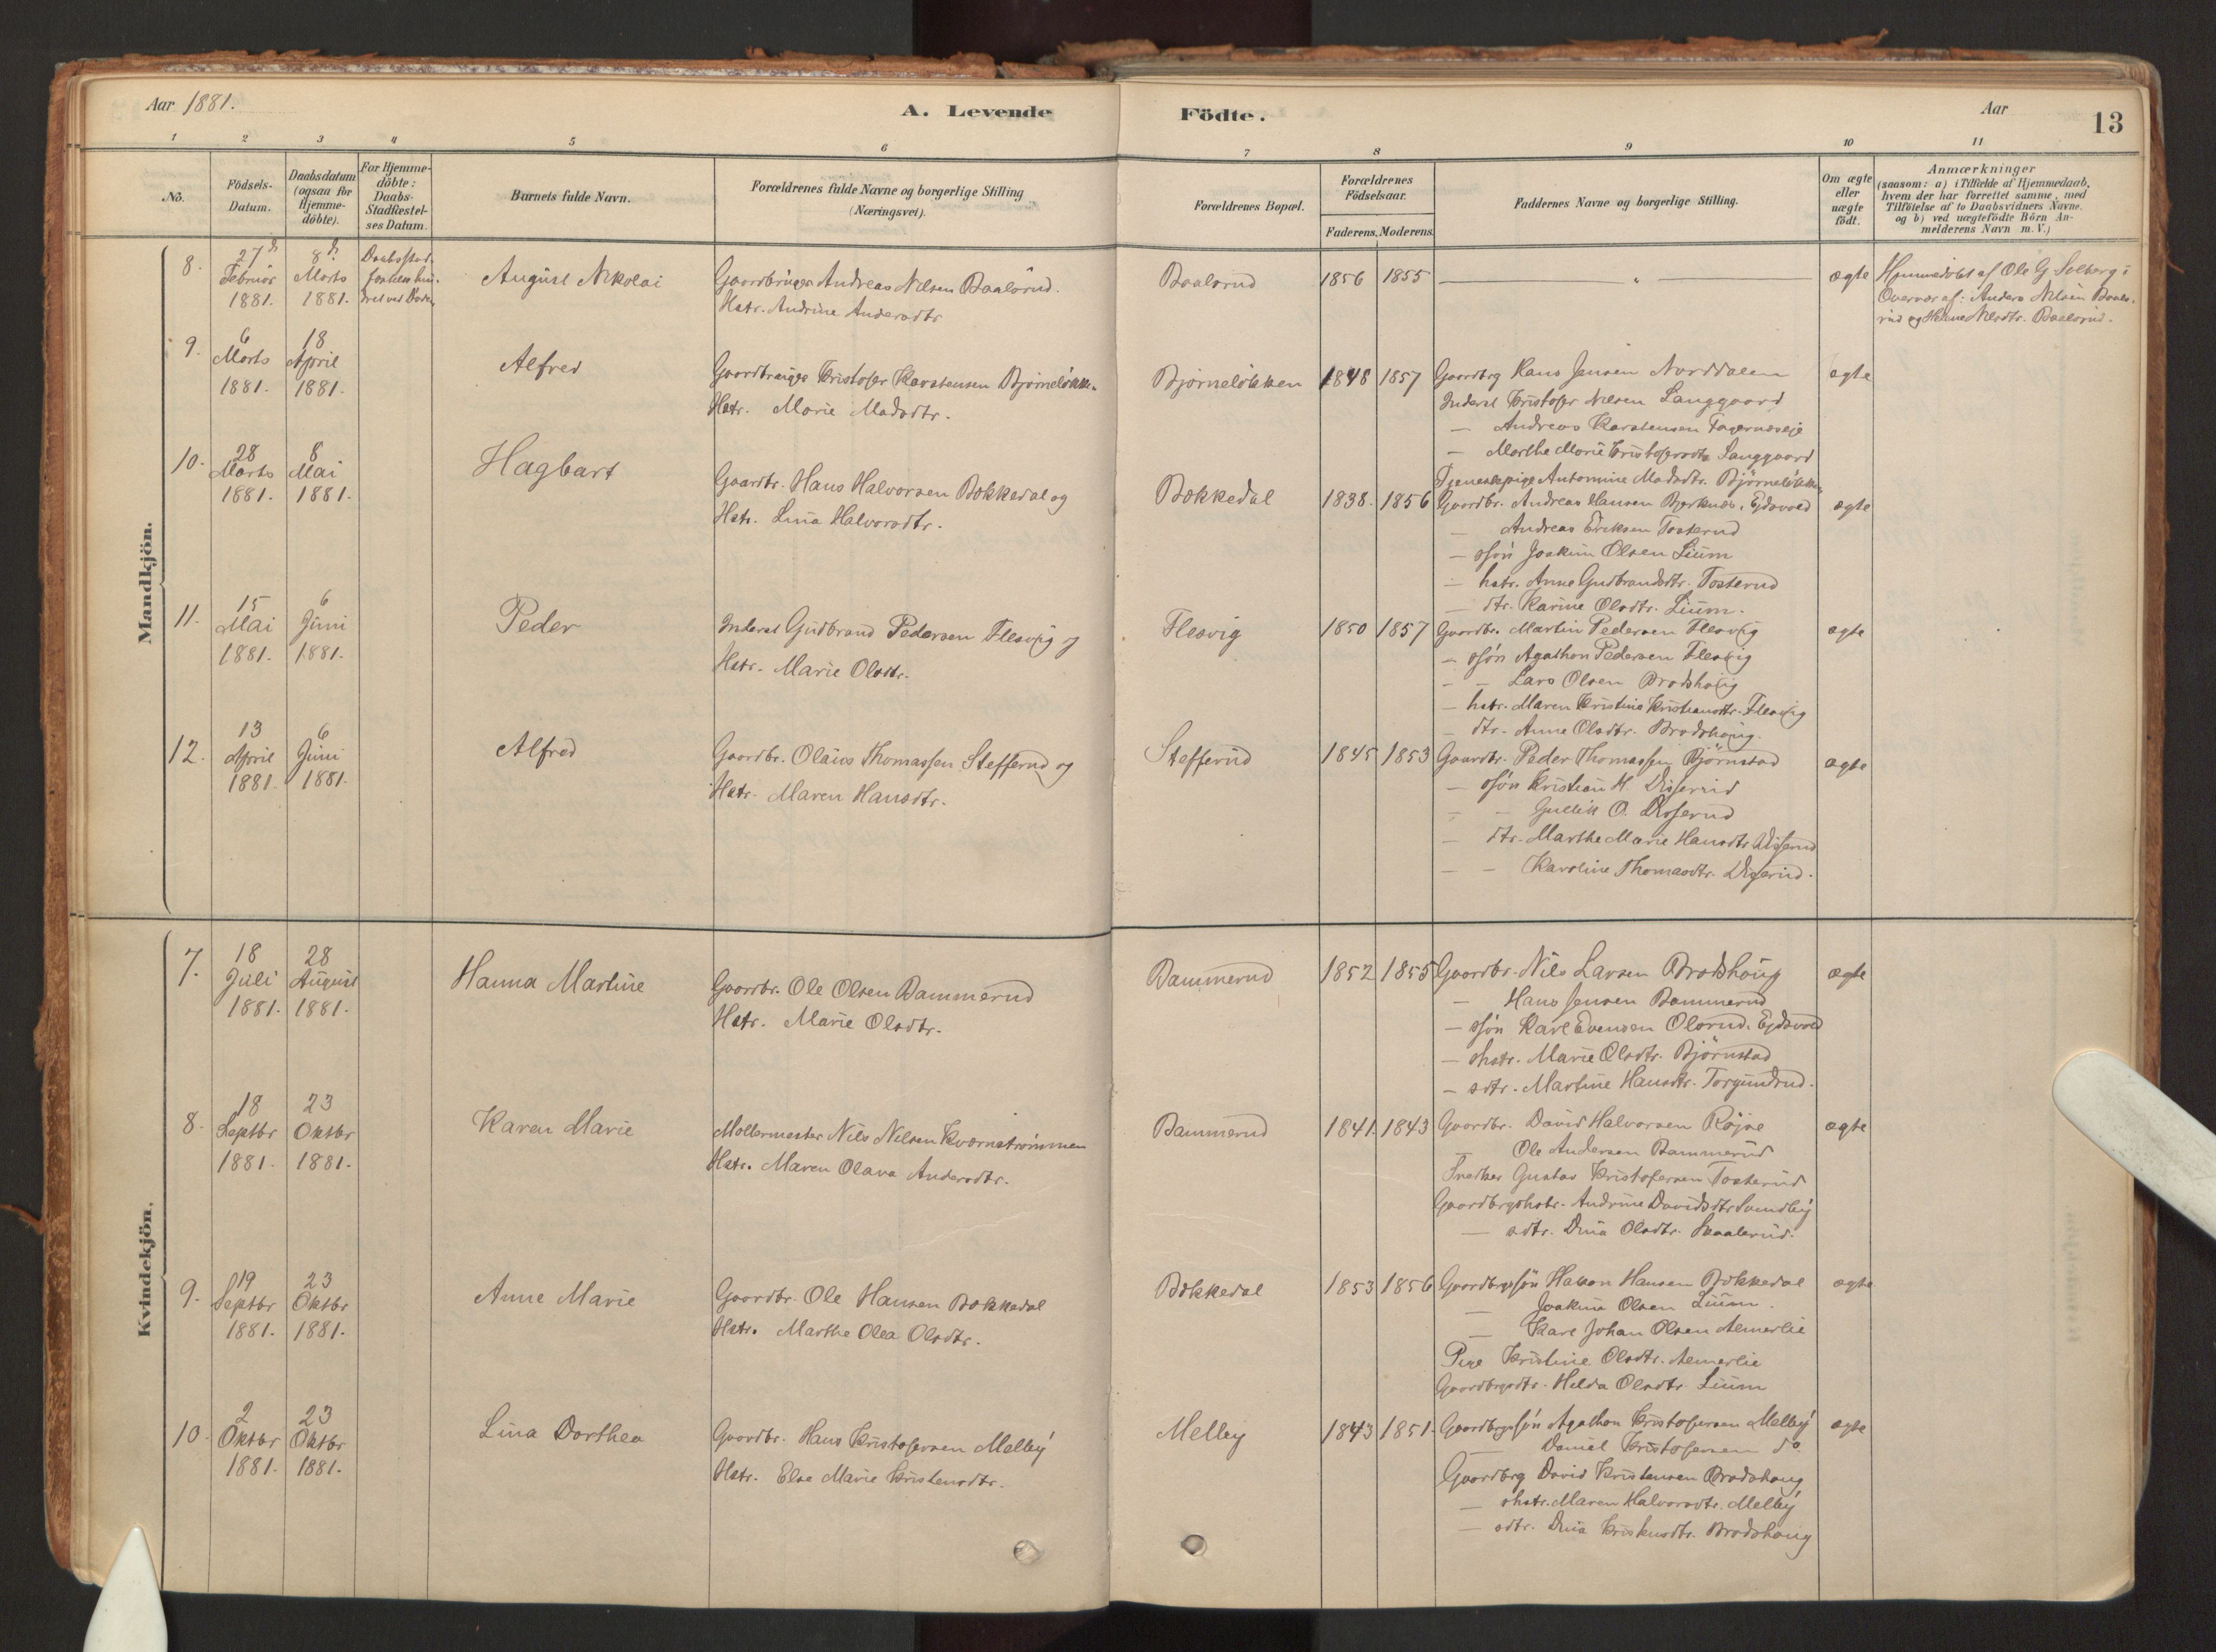 Aar 1881.
A. Levende Födte.
Aar
13
1 2 3 4 5 6 7 8 9 10 11
No.
Födsels-Datum.
Daabsdatum (ogsaa for Hjemme-döbte).
For Hjemme-döbte: Daabs-Stadfæstel-ses Datum.
Barnets fulde Navn.
Forældrenes fulde Navne og borgerlige Stilling (Næringsvei).
Forældrenes Bopæl.
Forældrenes Födselsaar.
Faderens. Moderens.
Faddernes Navne og borgerlige Stilling.
Om ægte eller uægte födt.
Anmærkninger
(saasom: a) i Tilfælde af Hjemmedaab,
hvem der har forrettet samme, med
Tilföielse af to Daabsvidners Navne.
og b) ved uægtefödte Börn An-
melderens Navn m. V.)
Mandkjön.
8. 27de Februar 1881. 8de Marts 1881.
August Nikolai
Gaardbruger Andreas Nilsen Baalsrud.
Hstr. Andrine Andersdtr
Baalsrud
1856 1855
ægte
Hjemmedøbt af Ole G. Solberg i
Overvær af: Anders Nilsen Baals-
rud og Nilsdtr. Baalsrud.
9. 6 Marts 1881. 18 April 1881.
Alfred
Gaardbruger Kristofer Karstensen Bjørneløkke
Hstr. Marie Madsdtr.
Bjørneløkken
1848 1857
Gaardbrg Hans Jensen Norddalen
Inderst Kristofer Nilsen Langgaard
— Andreas Karstensen Fagernæseje
— Marthe Marie Kristofersdtr Langgaard
Tjenestepige Antomine Madsdtr. Bjørneløkken
ægte
10. 28 Marts 1881. 8 Mai 1881.
Hagbart
Gaardbr. Hans Halvorsen Bokkedal og
Hstr. Lina Halvorsdtr.
Bokkedal
1838. 1856
Gaardbr. Andreas Hansen Bjerknæs, Ejdsvold
— Andreas Eriksen Tosterud
— søn Joakim Olsen Lium
— hstr. Anne Gudbrandsdtr. Tosterud
— dtr. Karine Olsdtr. Lium.
ægte
11. 15 Mai 1881. 6 Juni 1881.
Peder
Inderst Gudbrand Pedersen Flesvig og
Hstr. Marie Olsdtr.
Flesvig
1850 1857
Gaardbr. Martin Pedersen Flesvig
— søn Agathon Pedersen Flesvig
— — Lars Olsen Brodshoug
— hstr. Maren Kristine Kristiansdtr. Flesvig
— dtr. Anne Olsdtr. Brodshoug.
ægte
12. 13 April 1881. 6 Juni 1881.
Alfred
Gaardbr. Olaus Thomassen Stefferud og
Hstr. Maren Hansdtr.
Stefferud
1845 1853
Gaardbr. Peder Thomassen Bjørnstad
— søn Kristian H. Diserud
— — Gullik O. Diserud
— dtr. Marthe Marie Hansdtr. Diserud
— — Karoline Thomasdtr. Diserud.
ægte
Kvindekjön.
7. 18 Juli 1881. 28 August 1881.
Hanna Martine
Gaardbr. Ole Olsen Dammerud
Hstr. Marie Olsdtr.
Dammerud
1852 1855
Gaardbr. Nils Larsen Brodshoug
— Hans Jensen Dammerud
— søn Karl Evensen Olsrud, Ejdsvold
— shstr. Marie Olsdtr. Bjørnstad
— sdtr. Martine Hansdtr. Torgundrud.
ægte
8. 18 Septbr 1881. 23 Oktbr 1881.
Karen Marie
Møllermester Nils Nilsen Kværnstrømmen
Hstr. Maren Olava Andersdtr.
Dammerud
1841. 1843
Gaardbr. David Halvorsen Røjse
— Ole Andersen Dammerud
Snedker Gustav Kristofersen Tosterud
Gaardbrgshstr. Andrine Davidsdtr Sundby
— sdtr. Dina Olsdtr. Skaalerud.
ægte
9. 19 Septbr 1881. 23 Oktbr 1881.
Anne Marie
Gaardbr. Ole Hansen Bokkedal
Hstr. Marthe Olea Olsdtr.
Bokkedal
1853 1856
Gaardbrgssøn Hakon Hansen Bokkedal
— Joakim Olsen Lium.
— Karl Johan Olsen Aemerlie
Pige Kristine Olsdtr. Aemerlie
Gaardbrgsdtr. Hilda Olsdtr. Lium
ægte
10. 2 Oktbr 1881. 23 Oktbr 1881.
Lina Dorthea
Gaardbr. Hans Kristofersen Melby
Hstr. Else Marie Kristensdtr.
Melby
1843 1851.
Gaardbrgssøn Agathon Kristofersen Melby
— Daniel Kristofersen do
Gaardbrg David Kristensen Brodshoug
— shstr. Maren Halvorsdtr. Melby
— sdtr. Dina Kristensdtr. Brodshoug
ægte